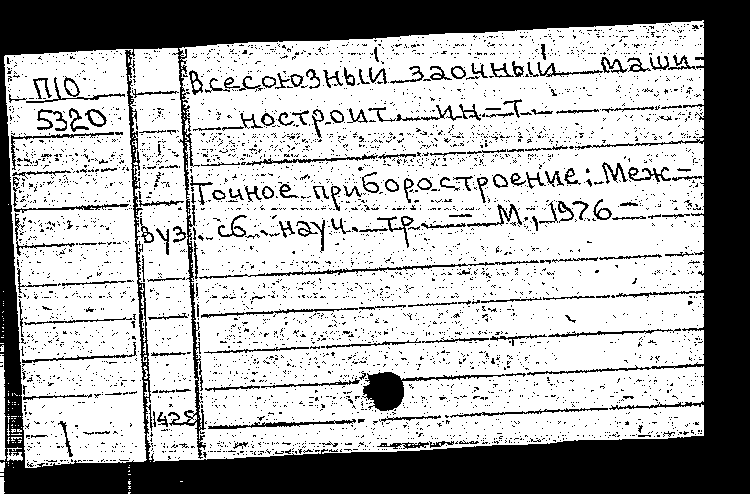 П10
5320
Всесоюзный заочный маши-
ностроит. ин-т.
Точное приборостроение: Меж-
вуз. сб. науч. тр. — М., 1976-
1428